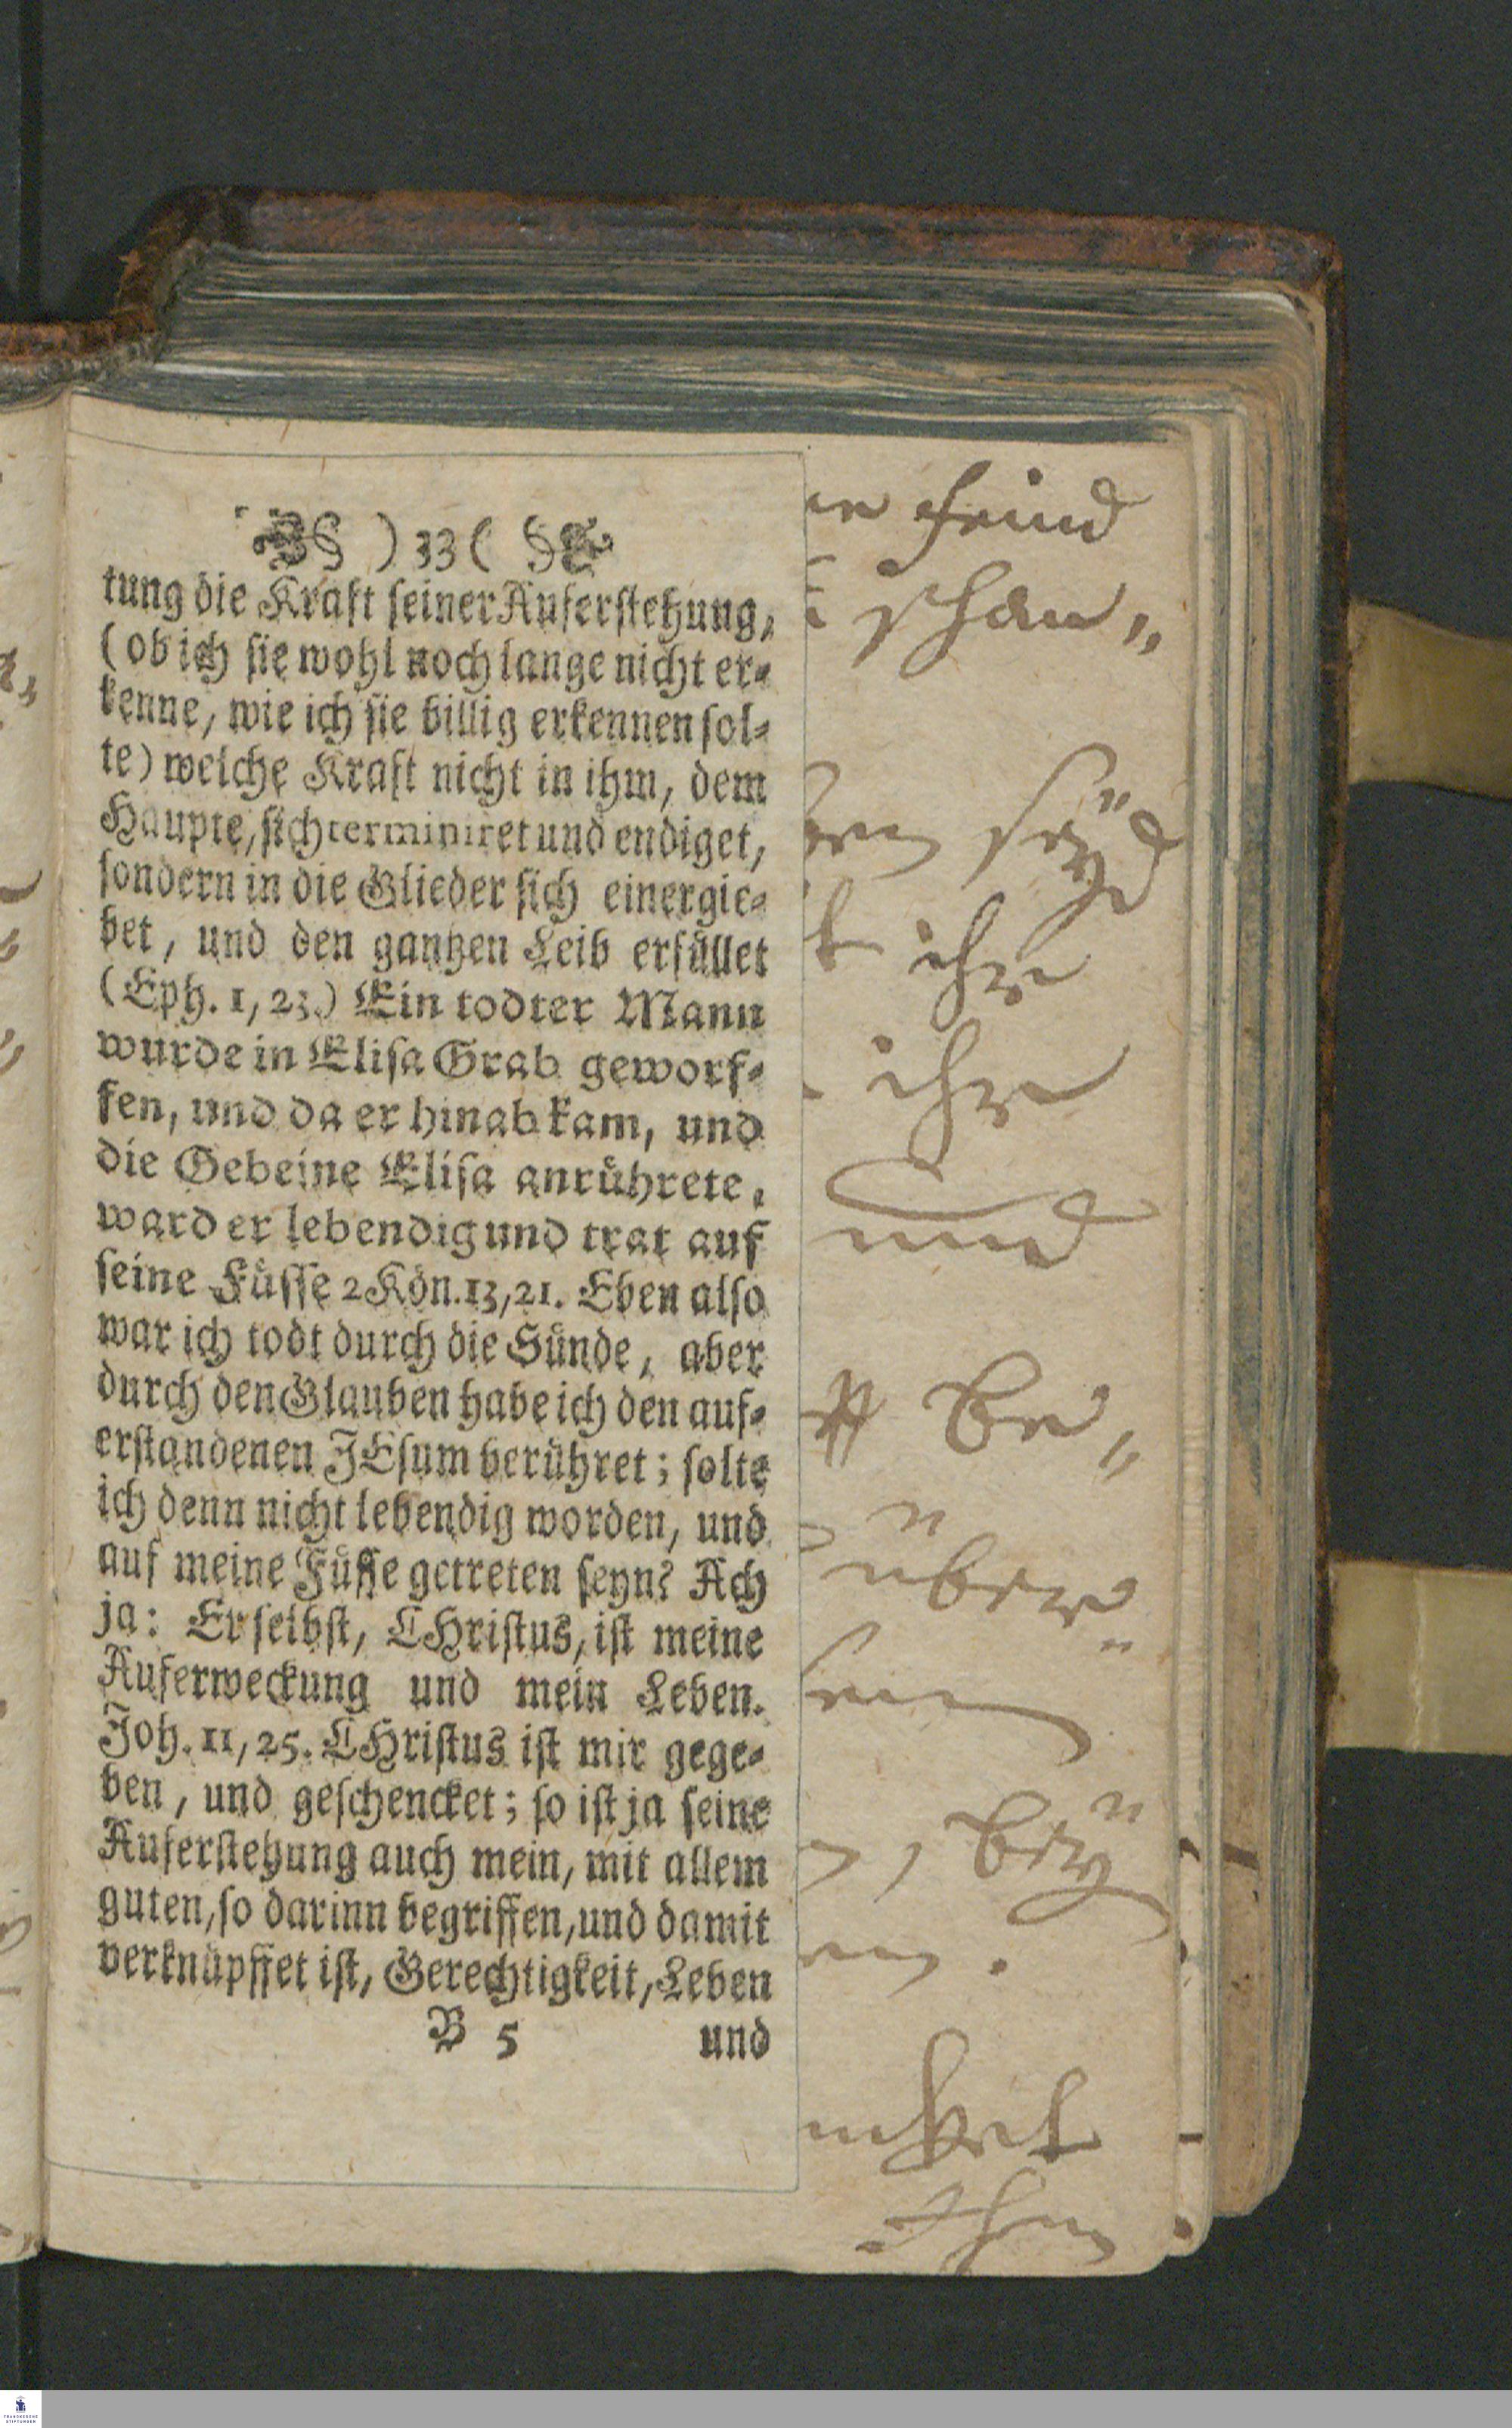 ) 33 (
tung die Kraft seiner Auferstehung,
(ob ich sie wohl noch lange nicht er-
kenne, wie ich sie billig erkennen sol-
te) welche Kraft nicht in ihm, dem
Haupte, sich terminiret und endiget,
sondern in die Glieder sich einergie-
bet, und den gantzen Leib erfüllet
(Eph. 1, 23.) Ein todter Mann
wurde in Elisa Grab geworf-
fen, und da er hinab kam, und
die Gebeine Elisa anrührete,
ward er lebendig und trat auf
seine Füsse 2 Kön. 13, 21. Eben also
war ich todt durch die Sünde, aber
durch den Glauben habe ich den auf-
erstandenen JEsum berühret; solte
ich denn nicht lebendig worden, und
auf meine Füsse getreten seyn? Ach
ja: Er selbst, CHristus, ist meine
Auferweckung und mein Leben.
Joh. 11, 25. CHristus ist mir gege-
ben, und geschencket; so ist ja seine
Auferstehung auch mein, mit allem
guten, so darinn begriffen, und damit
verknüpffet ist, Gerechtigkeit, Leben
B 5 und
feind
seÿd
ihr
ihr
und
be„
über
beÿ